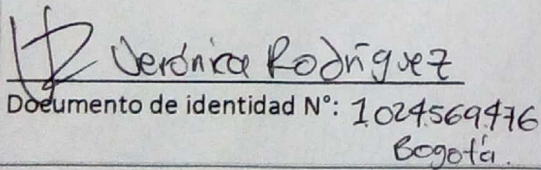 Verónica Rodríguez
Documento de identidad N°: 1.024.569.476
Bogotá.